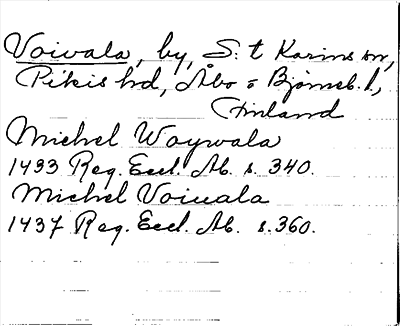 Voivala, by, S:t Karins sn,
Pikis hd, Åbo o Björneb. l.,
Finland
Michel Woywala
1433 Reg. Eccl. Ab. s. 340.
Michel Voiuala
1437 Reg. Eccl. Ab. s. 360.